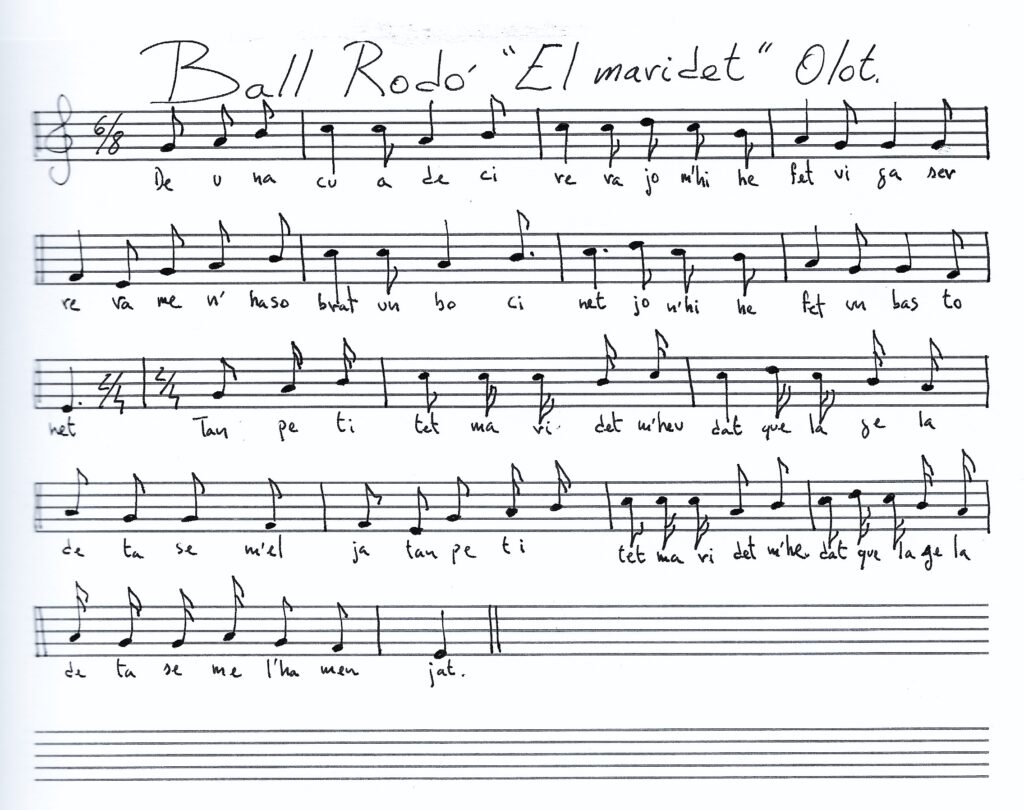 Ball Rodó "El maridet" Olot.
6/8
De u na cu a de ci re va jo m'hi he fet vi ga ser
re va me n' haso brat un bo ci net jo n'hi he fet un bas to
net 2/4 2/4 Tan pe ti tet ma ri det m'heu dat que la ge la
de ta se m'el ja tan pe ti tet ma ri det m'he dat que la ge la
de ta se me l'ha men jat.